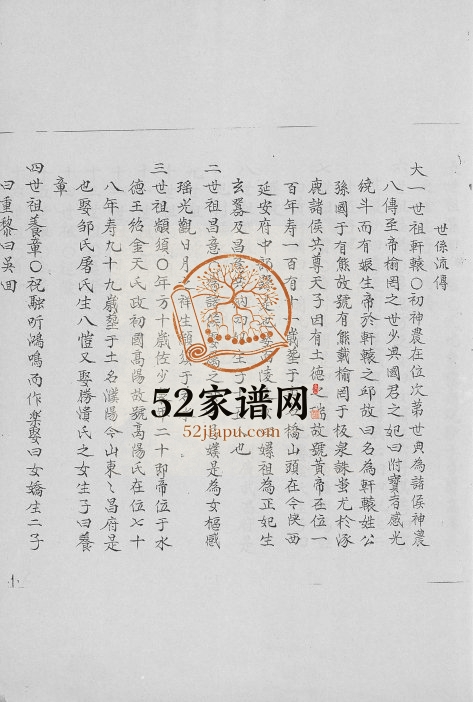 世係流傳
大一世祖軒轅〇初神農在位次苐世典為諸侯神農
八傳至帝榆罔之世少典國君之妃曰附寶百感光
繞斗而有娠生帝於軒轅之邱故曰名為軒轅姓公
孫國于有熊故號有熊戴榆罔于板泉誅蚩尤於涿
鹿諸侯共尊天子因有土德之瑞故號黃帝在位一
百年寿一百有十一歲塟于 橋山頭在今陝西
延安府中 嫘祖為正妃生
玄囂及昌意 也
二世祖昌意 是為女樞感
瑶光觀日月 祥生顓
三世祖顓頊〇年方十歲佐少 年二十即帝位于水
德王紹金天氏政初國髙陽故號髙陽氏在位七十
八年寿九十九歲塟于土名濮陽今山東 昌府是
也娶邹氏屠氏生八愷又娶勝濆氏之女生子曰養
章
四世祖養章〇祝融听鴻鳴而作楽娶曰女嬌生二子
曰重黎曰吳回
52家谱网
52jiapu.com